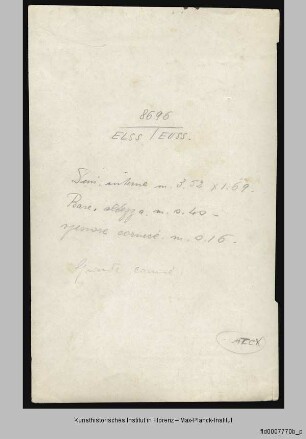 8696
ELSS / EUSS.
Dim. interne m. 3.52 x 1.69.
Base. altezza. m. 0.40 -
spessore cornice. m. 0.16.
Kunsthistorisches Institut in Florenz – Max-Planck-Institut
fld0007770b_p